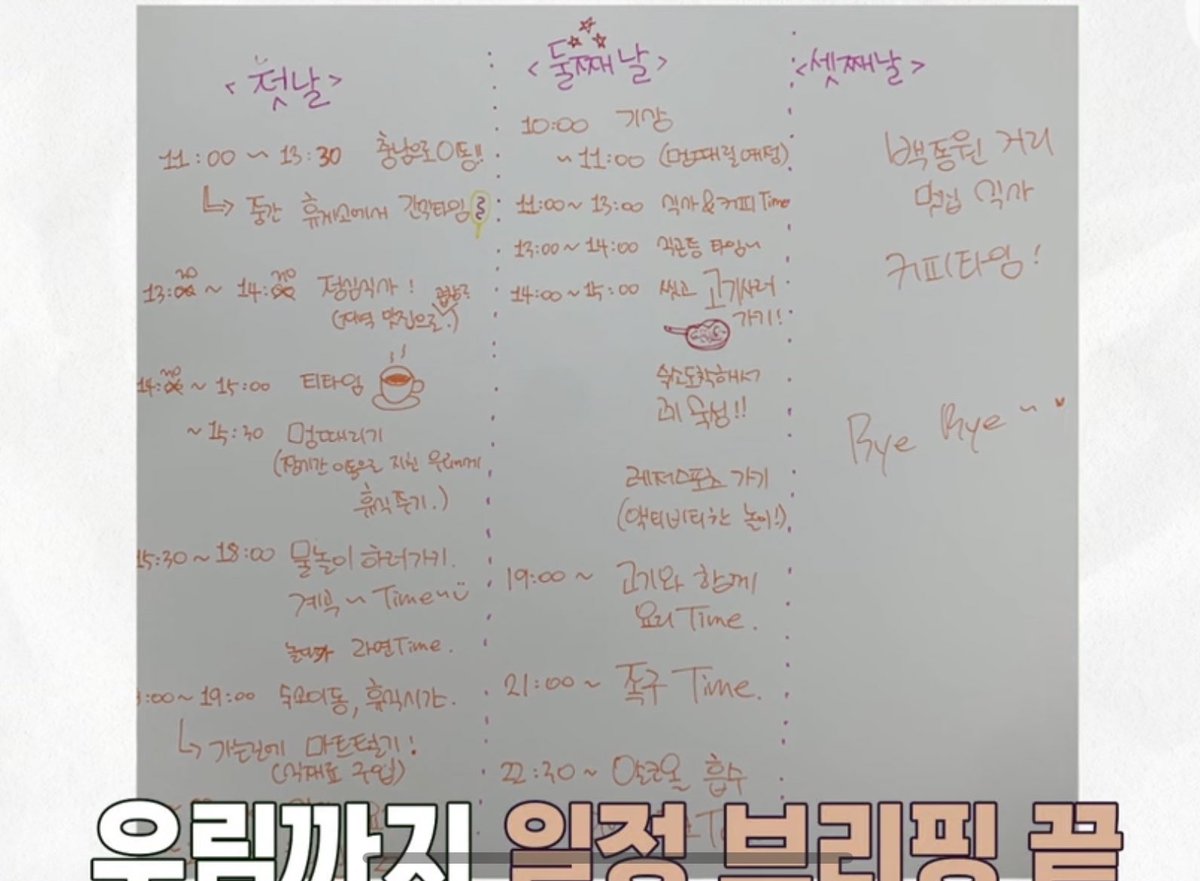 <첫날>
11:00 ~ 13:30 충남으로 이동!!
↳ 중간 휴게소에서 간식타임
13:30 ~ 14:30 점심식사!
(지역 맛집으로!)
14:30 ~ 15:00 티타임
~ 15:30 멍때리기
(장시간 이동으로 지친 우리에게
휴식주기.)
15:30 ~ 18:00 물놀이 하러가기.
계곡 ~ Time~
놀다가 라면Time.
:00 ~ 19:00 숙소이동, 휴식시간.
↳ 가는길에 마트털기!
(식재료 구입)
<둘째날>
10:00 기상
~ 11:00 (멍때릴예정)
11:00 ~ 13:00 식사&커피Time
13:00 ~ 14:00 타임~
14:00 ~ 15:00 씻고 고기사러
가기!
숙소도착해서
고기 숙성!!
레저스포츠 가기
(액티비티한 놀이!)
19:00 ~ 고기와 함께
요리Time.
21:00 ~ 족구 Time.
22:30 ~ 알코올 흡수
<셋째날>
백종원 거리
맛집 식사
커피타임!
Bye Bye ~
우림까지 일정 브리핑 끝